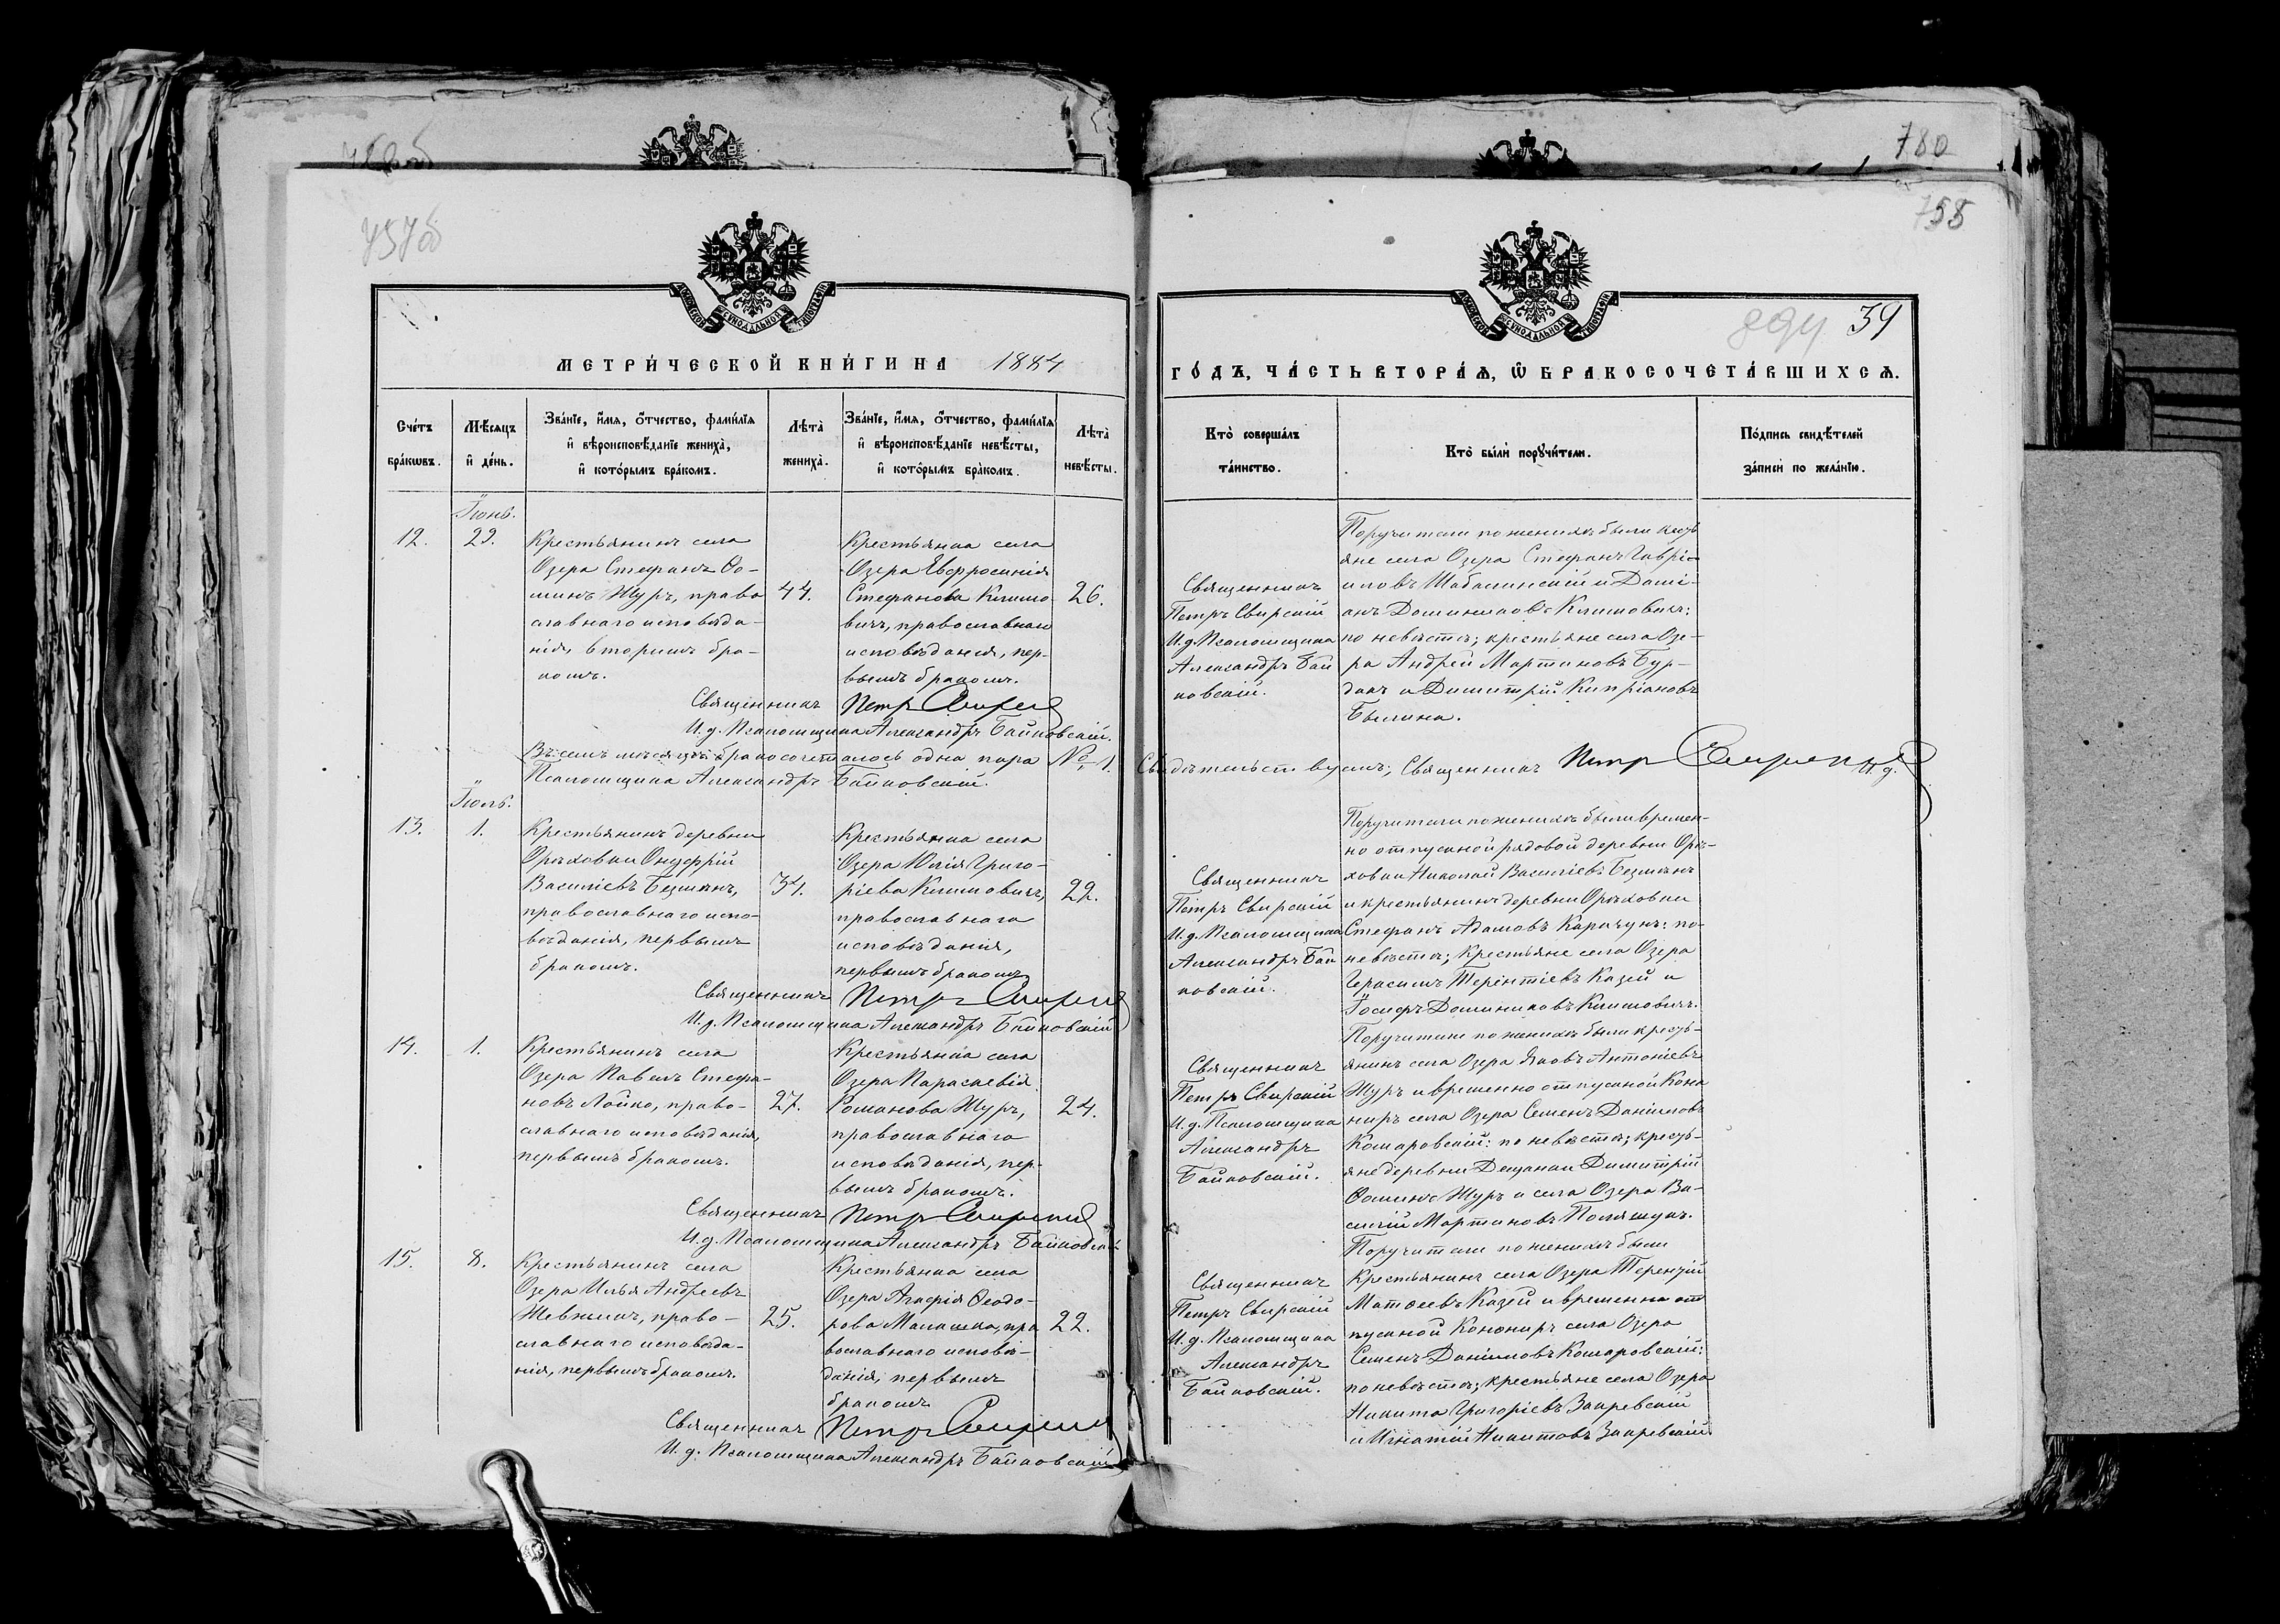 780
757об
758
МОСКОВСКОЙ СѴНОДАЛЬНОЙ ТИПОГРАФІИ
МОСКОВСКОЙ СѴНОДАЛЬНОЙ ТИПОГРАФІИ
39
МЕТРИ́ЧЕСКОЙ КНИ́ГИ НА 1884
ГО́ДЪ, ЧА́СТЬ ВТОРА́Ѧ, Ѡ҆ БРАКОСОЧЕТА́ВШИХСѦ.
Сче́тъ
бра́кѡвъ.
Мѣ́сѧцъ
и҆ де́нь.
Зва́нїе, и҆́мѧ, ѻ҆́тчество, фами́лїѧ
и҆ вѣроисповѣ́данїе жениха̀,
и҆ кото́рымъ бра́комъ.
Лѣта̀
жениха̀.
Зва́нїе, и҆́мѧ, ѻ҆́тчество, фами́лїѧ
и҆ вѣроисповѣ́данїе невѣ́сты,
и҆ кото́рымъ бра́комъ.
Лѣта̀
невѣ́сты.
Кто̀ соверша́лъ
та́инство.
Кто̀ бы́ли порꙋчи́тели.
По́дпись свидѣ́телей
за́писи по жела́нїю.
Іюнь.
12.
29.
Крестьянинъ села
Озера Стефанъ Ѳо-
минъ Журъ, право
славнаго исповѣда-
нія, вторымъ бра-
комъ.
44.
Крестьянка села
Озера Евфросинія
Стефанова Климо-
вичъ, православнаго
исповѣданія, пер-
вымъ бракомъ.
26.
Священникъ
Петръ Свирскій
И.д. Псаломщика
Александръ Бай
ковскій.
Поручители по женихѣ были кресть
яне села Озера Стефанъ Гаврі-
иловъ Шабалинскій и Дамі-
анъ Доминиковъ Климовичъ:
по невѣстѣ; крестьяне села Озе-
ра Андрей Мартиновъ Бур-
дакъ и Димитрій Кипріановъ
Былина.
Священникъ Петръ Свирскій
И.д. Псаломщика Александръ Байковскій.
Въ семъ мѣсяцѣ бракосочеталось одна пара № 1. Свидѣтельствуемъ; Священникъ Петръ Свирскій И.д.
Псаломщика Александръ Байковскій.
Іюль.
13.
1.
Крестьянинъ деревни
Орѣховки Онуфрій
Василіевъ Безмѣнъ,
православнаго испо-
вѣданія, первымъ
бракомъ.
34.
Крестьянка села
Озера Юлія Григо-
ріева Климовичъ,
православнаго
исповѣданія,
первымъ бракомъ
22.
Священникъ
Петръ Свирскій
И.д. Псаломщика
Александръ Бай
ковскій.
Поручители по женихѣ были времен-
но отпускной рядовой деревни Орѣ-
ховки Николай Василіевъ Безмѣнъ
и крестьянинъ деревни Орѣховки
Стефанъ Адамовъ Карачунъ: по-
невѣстѣ; Крестьяне села Озера
Герасимъ Терентіевъ Казей и
Іосифъ Доминиковъ Климовичъ.
Священникъ Петръ Свирскій
И.д. Псаломщика Александръ Байковскій
14.
1.
Крестьянинъ села
Озера Павелъ Стефа-
новъ Лойко, право-
славнаго исповѣданія,
первымъ бракомъ.
27.
Крестьянка села
Озера Параскевія
Романова Журъ,
православнаго
исповѣданія, пер-
вымъ бракомъ.
24.
Священникъ
Петръ Свирскій
И.д. Псаломщика
Александръ
Байковскій.
Поручители по женихѣ были кресть-
янинъ села Озера Яковъ Антоніевъ
Журъ и временно отпускной Кано
ниръ села Озера Семенъ Даніиловъ
Комаровскій: по невѣстѣ; кресть-
яне деревни Дещанки Димитрій
Ѳоминъ Журъ и села Озера Ва-
силій Мартиновъ Полящукъ.
Священникъ Петръ Свирскій
И.д. Псаломщика Александръ Байковскій
15.
8.
Крестьянинъ села
Озера Илья Андреевъ
Жевжикъ, право-
славнаго исповѣда-
нія, первымъ бракомъ.
25.
Крестьянка села
Озера Агафія Ѳеодо-
рова Малашко, пра
вославнаго исповѣ-
данія, первымъ
бракомъ
22.
Священникъ
Петръ Свирскій
И.д. Псаломщика
Александръ
Байковскій.
Поручители по женихѣ были
крестьянинъ села Озера Терентій
Матѳеевъ Казей и временно от
пускной Конониръ села Озера
Семенъ Даніиловъ Комаровскій:
по невѣстѣ; крестьяне села Озера
Никита Григоріевъ Закревскій
и Игнатій Никитовъ Закревскій
Священникъ Петръ Свирскій
И.д. Псаломщика Александръ Байковскій